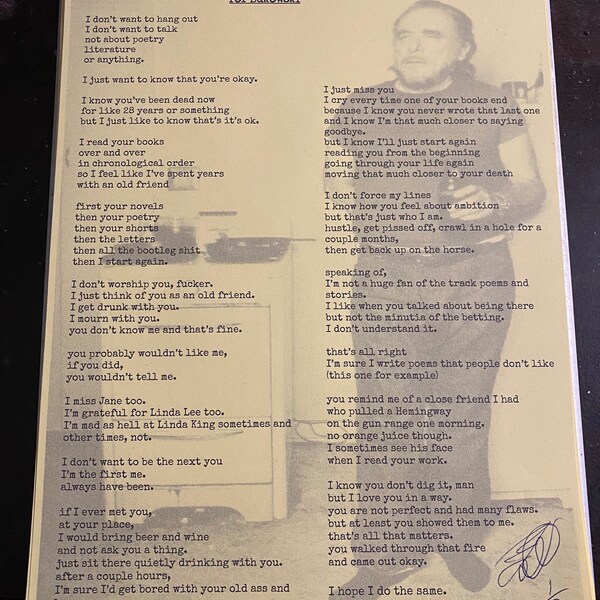 for Bukowski
I don't want to hang out
I don't want to talk
not about poetry
literature
or anything.
I just want to know that you're okay.
I know you've been dead now
for like 28 years or something
but I just like to know that's it's ok.
I read your books
over and over
in chronological order
so I feel like I've spent years
with an old friend
first your novels
then your poetry
then your shorts
then the letters
then all the bootleg shit
then I start again.
I don't worship you, fucker.
I just think of you as an old friend.
I get drunk with you.
I mourn with you.
you don't know me and that's fine.
you probably wouldn't like me,
if you did,
you wouldn't tell me.
I miss Jane too.
I'm grateful for Linda Lee too.
I'm mad as hell at Linda King sometimes and
other times, not.
I don't want to be the next you
I'm the first me.
always have been.
if I ever met you,
at your place,
I would bring beer and wine
and not ask you a thing.
just sit there quietly drinking with you.
after a couple hours,
I'm sure I'd get bored with your old ass and
I just miss you
I cry every time one of your books end
because I know you never wrote that last one
and I know I'm that much closer to saying
goodbye.
but I know I'll just start again
reading you from the beginning
going through your life again
moving that much closer to your death
I don't force my lines
I know how you feel about ambition
but that's just who I am.
hustle, get pissed off, crawl in a hole for a
couple months,
then get back up on the horse.
speaking of,
I'm not a huge fan of the track poems and
stories.
I like when you talked about being there
but not the minutia of the betting.
I don't understand it.
that's all right
I'm sure I write poems that people don't like
(this one for example)
you remind me of a close friend I had
who pulled a Hemingway
on the gun range one morning.
no orange juice though.
I sometimes see his face
when I read your work.
I know you don't dig it, man
but I love you in a way.
you are not perfect and had many flaws.
but at least you showed them to me.
that's all that matters.
you walked through that fire
and came out okay.
I hope I do the same.